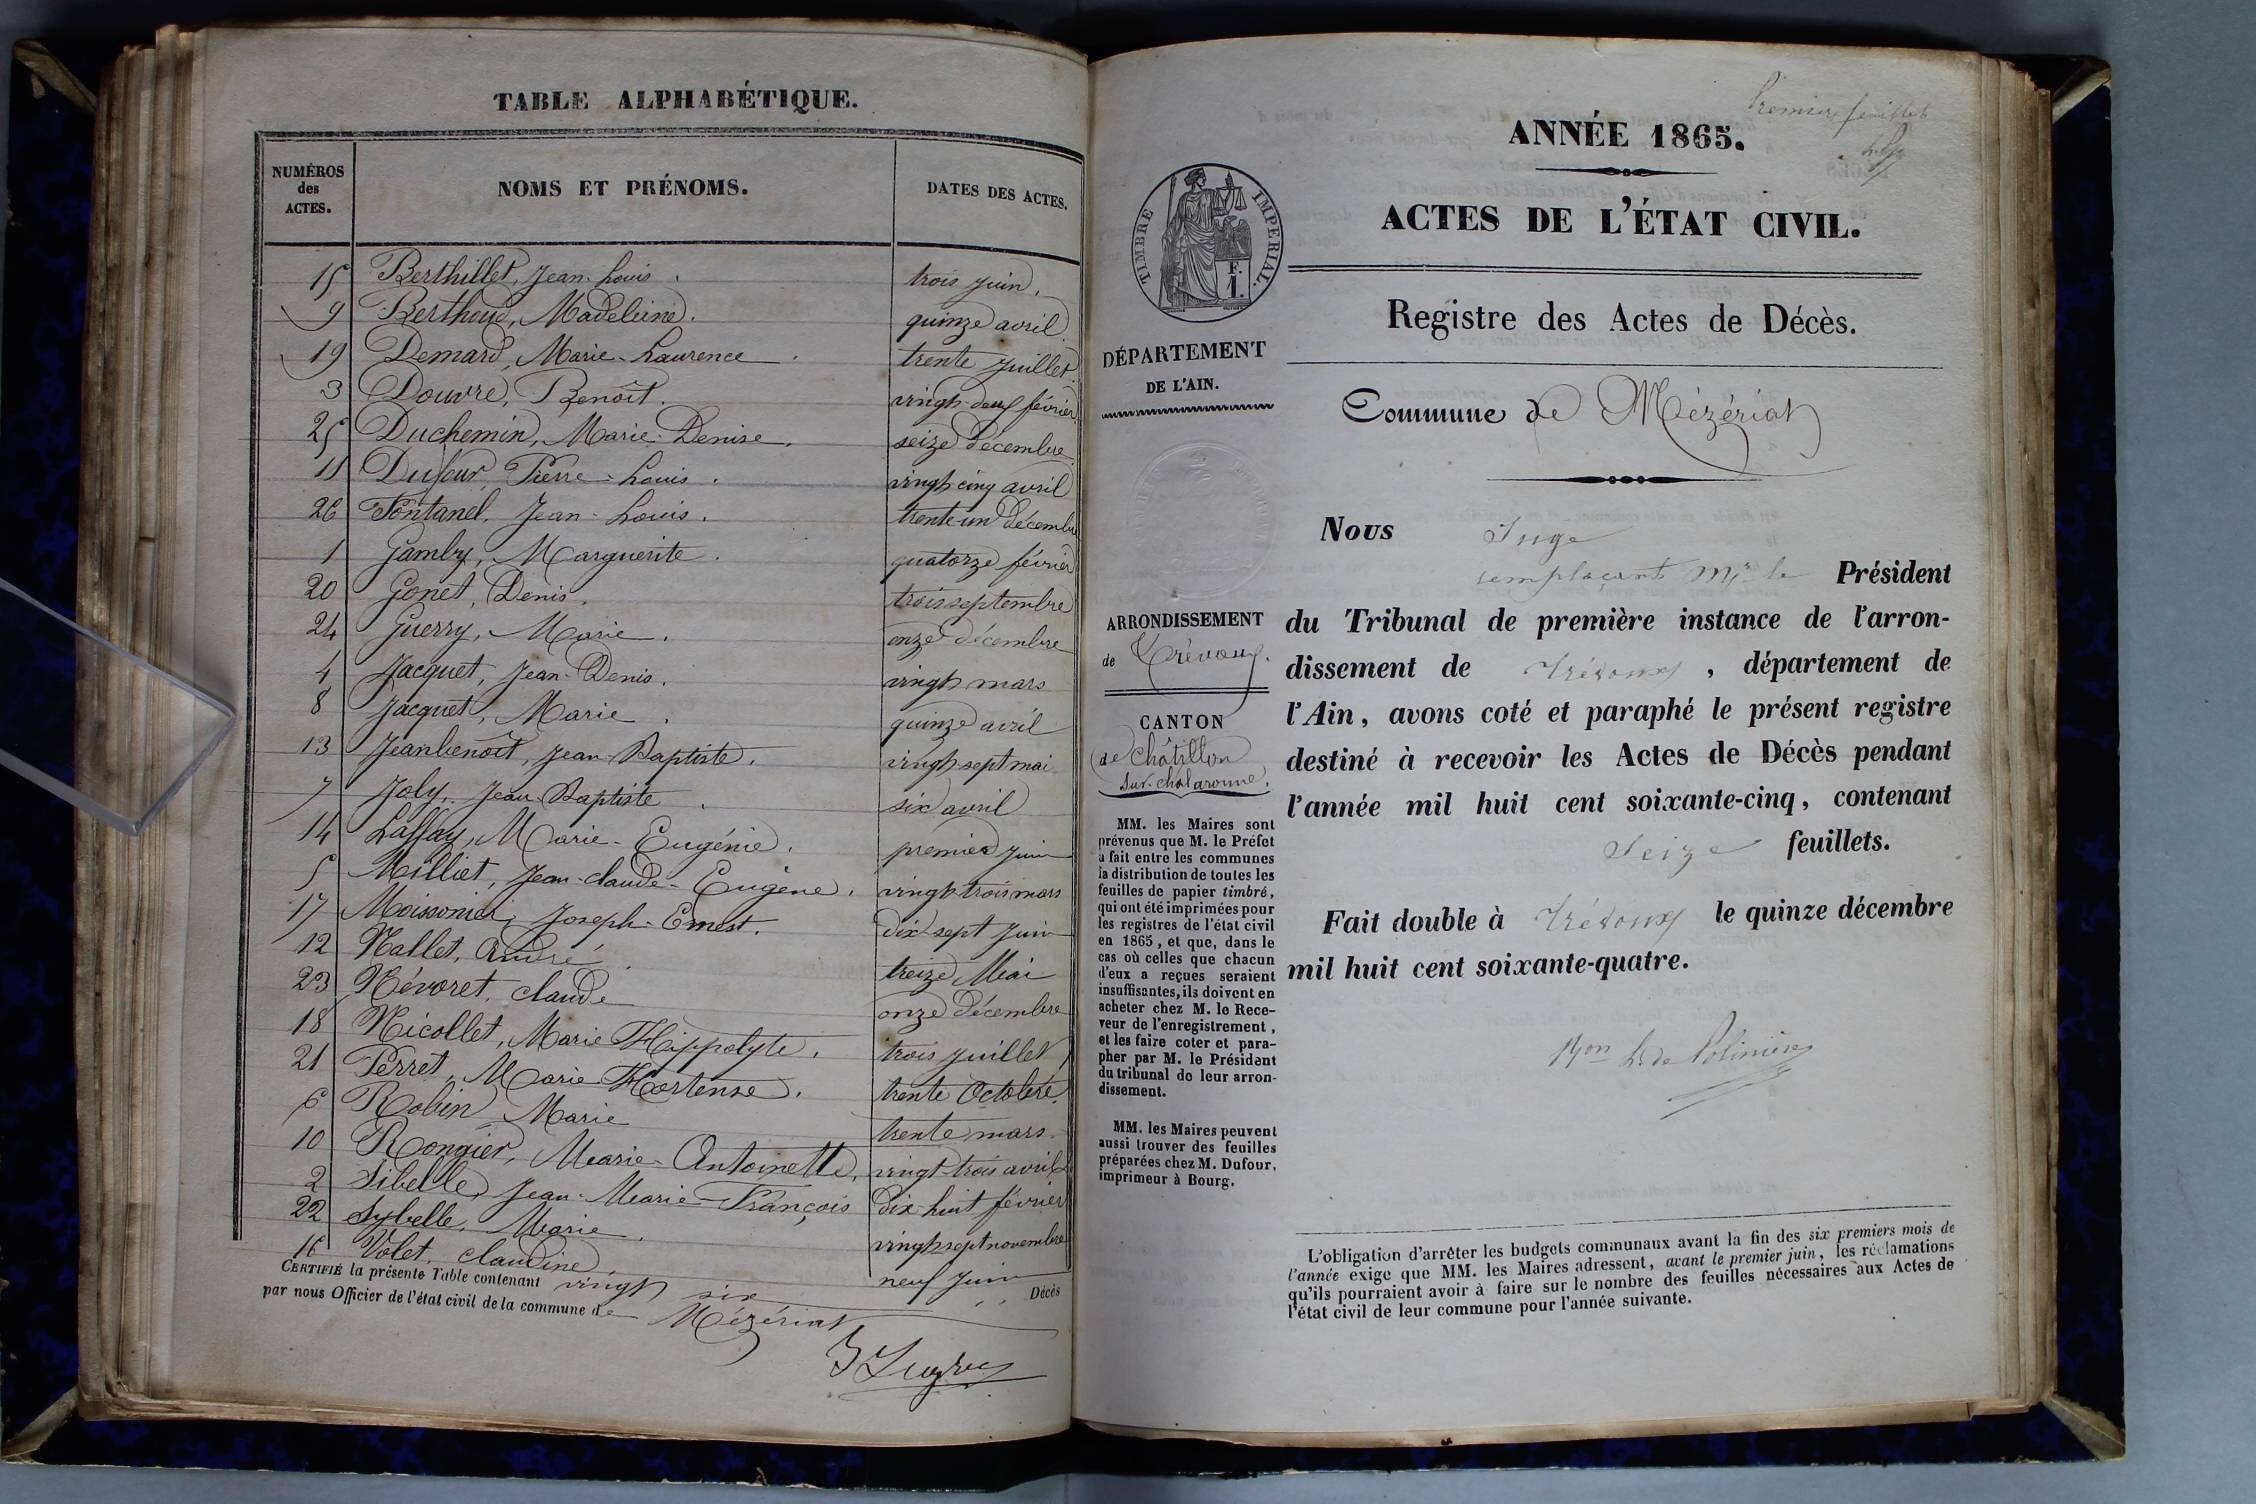 TABLE ALPHABÉTIQUE.
NUMÉROS des ACTES. NOMS ET PRÉNOMS. DATES DES ACTES.
15 Berthillet, Jean-Louis. trois juin.
9 Berthoud, Madeleine. quinze avril
19 Demard, Marie-Laurence. trente juillet
3 Douvre, Benoît. vingt-deux février
25 Duchemin, Marie-Denise. seize décembre
11 Dufour, Pierre-Louis. vingt cinq avril
26 Fontanel, Jean-Louis. trente-un décembre
1 Gamby, Marguerite. quatorze février
20 Gonet, Denis. trois septembre
24 Guerry, Marie. onze décembre
4 Jacquet, Jean-Denis. vingt mars
8 Jacquet, Marie. quinze avril
13 Jeanbenoît, Jean-Baptiste. vingt sept mai
7 Joly, Jean-Baptiste. six avril
14 Laffay, Marie-Eugénie. premier juin
5 Milliet, Jean-claude-Eugène. vingt trois mars
17 Moissonier, Joseph-Ernest. dix-sept juin
12 Nallet, André treize Mai
23 Névoret, claude onze décembre
18 Nicollet, Marie Hippolyte. trois juillet
21 Perret, Marie-Hortense. trente Octobre
6 Robin, Marie trente mars.
10 Rongier, Marie-Antoinette, vingt-trois avril
2 Sibelle, Jean-Marie-François dix huit février
22 Sybelle, Marie. vingt sept novembre
16 Volet, claudine neuf juin
CERTIFIÉ la présente Table contenant vingt six Décès
par nous Officier de l'état civil de la commune de Mézériat
Premier feuillet
ANNÉE 1865.
ACTES DE L'ÉTAT CIVIL.
Registre des Actes de Décès.
TIMBRE IMPÉRIAL.
F.
1.
DÉPARTEMENT
DE L'AIN.
Commune de Mézériat
ARRONDISSEMENT
de Trévoux.
CANTON
de Châtillon
sur-chalaronne.
MM. les Maires sont
prévenus que M. le Préfet
a fait entre les communes
la distribution de toutes les
feuilles de papier timbré,
qui ont été imprimées pour
les registres de l'état civil
en 1865, et que, dans le
cas où celles que chacun
d'eux a reçues seraient
insuffisantes, ils doivent en
acheter chez M. le Rece-
veur de l'enregistrement,
et les faire coter et para-
pher par M. le Président
du tribunal de leur arron-
dissement.
MM. les Maires peuvent
aussi trouver des feuilles
préparées chez M. Dufour,
imprimeur à Bourg.
Nous Juge
remplaçant Mr le Président
du Tribunal de première instance de l'arron-
dissement de Trévoux, département de
l'Ain, avons coté et paraphé le présent registre
destiné à recevoir les Actes de Décès pendant
l'année mil huit cent soixante-cinq, contenant
Seize feuillets.
Fait double à Trévoux le quinze décembre
mil huit cent soixante-quatre.
de Polinière
L'obligation d'arrêter les budgets communaux avant la fin des six premiers mois de
l'année exige que MM. les Maires adressent, avant le premier juin, les réclamations
qu'ils pourraient avoir à faire sur le nombre des feuilles nécessaires aux Actes de
l'état civil de leur commune pour l'année suivante.